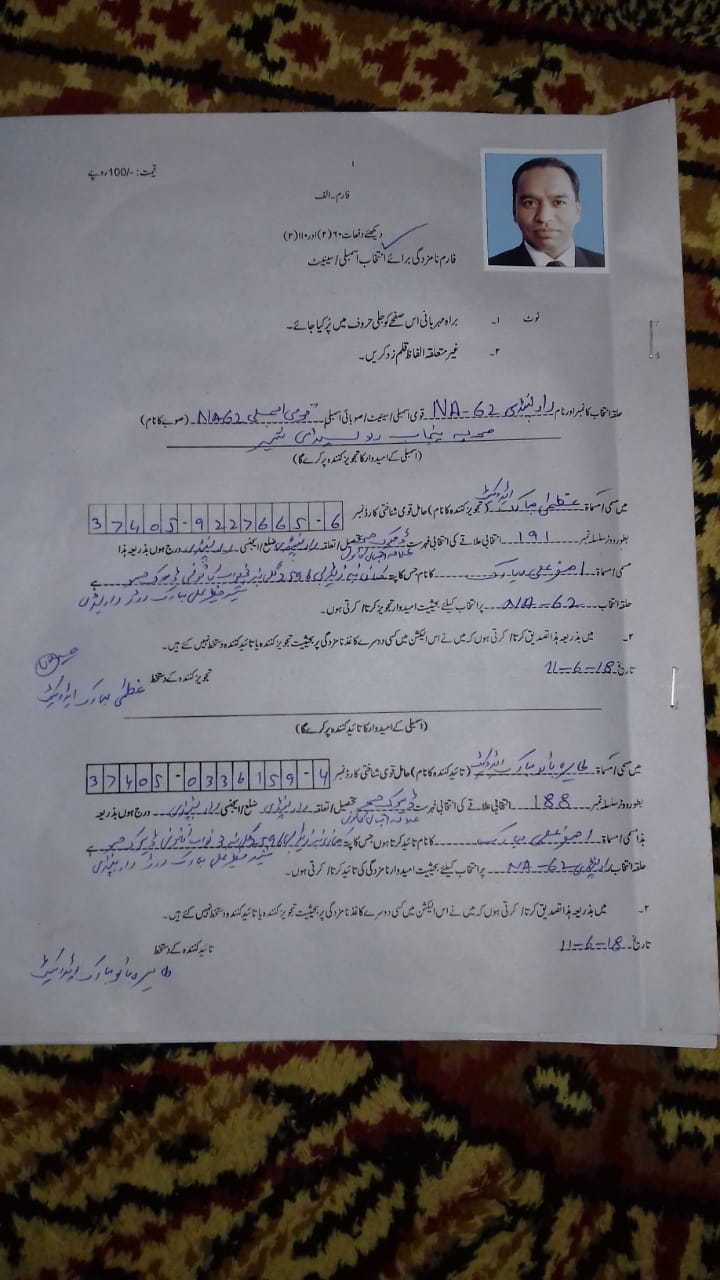 ۱
قیمت: -/100روپے
فارم۔الف
دیکھئے دفعات ۶۰(۲) اور ۱۱۰(۲)
فارم نامزدگی برائے انتخاب اسمبلی/سینیٹ
نوٹ ۱۔ براہ مہربانی اس صفحے کو جلی حروف میں پُر کیا جائے۔
۲۔ غیر متعلقہ الفاظ قلم زد کریں۔
حلقہ انتخاب کا نمبر اور نام راولپنڈی NA-62 قومی اسمبلی/سینیٹ/صوبائی اسمبلی قومی اسمبلی NA62 (صوبے کا نام)
صوبہ پنجاب
(اسمبلی کے امیدوار کا تجویز کنندہ پر کرے گا)
میں مسمی/مسماۃ عظمیٰ مبارک ایڈووکیٹ (تجویز کنندہ کا نام) حامل قومی شناختی کارڈ نمبر 37405-9227665-6
بطور ووٹر سلسلہ نمبر 191 انتخابی علاقے کی انتخابی فہرست ڈھوک تحصیل/تعلقہ راولپنڈی ضلع/ایجنسی راولپنڈی درج ہوں بذریعہ ہذا
مسمی/مسماۃ مبارک کا نام جس کا پتہ ہے
حلقہ انتخاب NA-62 پر انتخاب کیلئے بحیثیت امیدوار تجویز کرتا/کرتی ہوں۔
۲۔ میں بذریعہ ہذا تصدیق کرتا/کرتی ہوں کہ میں نے اس الیکشن میں کسی دوسرے کاغذ نامزدگی پر بحیثیت تجویز کنندہ یا تائید کنندہ دستخط نہیں کئے ہیں۔
تاریخ 11-6-18
تجویز کنندہ کے دستخط
عظمیٰ مبارک ایڈووکیٹ
(اسمبلی کے امیدوار کا تائید کنندہ پر کرے گا)
میں مسمی/مسماۃ طاہرہ بانو مبارک ایڈووکیٹ (تائید کنندہ کا نام) حامل قومی شناختی کارڈ نمبر 37405-0336159-4
بطور ووٹر سلسلہ نمبر 188 انتخابی علاقے کی انتخابی فہرست ڈھوک تحصیل/تعلقہ راولپنڈی ضلع/ایجنسی راولپنڈی درج ہوں بذریعہ
ہذا مسمی/مسماۃ مبارک کا نام تائید کرتا ہوں جس کا پتہ ہے
حلقہ انتخاب راولپنڈی NA-62 پر انتخاب کیلئے بحیثیت امیدوار نامزدگی کی تائید کرتا/کرتی ہوں۔
۲۔ میں بذریعہ ہذا تصدیق کرتا/کرتی ہوں کہ میں نے اس الیکشن میں کسی دوسرے کاغذ نامزدگی پر بحیثیت تجویز کنندہ یا تائید کنندہ دستخط نہیں کئے ہیں۔
تاریخ 11-6-18
تائید کنندہ کے دستخط
طاہرہ بانو مبارک ایڈووکیٹ